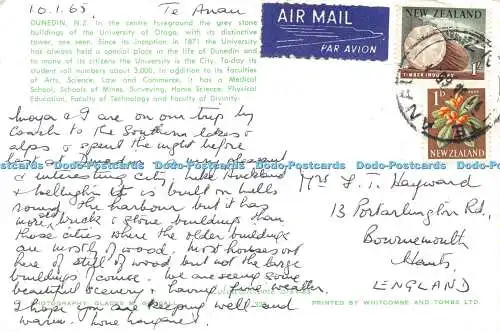 10.1.65. Te Anau
DUNEDIN, N.Z. In the centre foreground the grey stone
buildings of the University of Otago, with its distinctive
tower, are seen. Since its inception in 1871 the University
has always held a special place in the life of Dunedin and
to many of its citizens the University is the City. To-day
its student roll numbers about 3,000. In addition to its Faculties
of Arts, Science, Law and Commerce, it has a Medical
School, Schools of Mines, Surveying, Home Science, Physical
Education, Faculty of Technology and Faculty of Divinity.
AIR MAIL
PAR AVION
NEW ZEALAND
TIMBER INDUSTRY
1D
NEW ZEALAND
& I are on our trip by
Coach to the Southern Lakes &
alps & spent the night before
pleasant
& interesting city, like Auckland
& Wellington it is built on hills
round the harbour but it has
more old brick & stone buildings than
those cities where the older buildings
are mostly of wood. Most houses out
here are still of wood but not the large
buildings of course. We are seeing some
beautiful scenery & having fine weather.
I hope you are keeping well and
warm. Love
Mrs F. T. Hayward
13 Portarlington Rd,
Bournemouth
Hants,
ENGLAND
Dodo-Postcards Dodo-Postcards Dodo-Postcards Dodo-Postcards Dodo-Postcards
PHOTOGRAPHY: GLADYS M.
PRINTED BY WHITCOMBE AND TOMBS LTD.